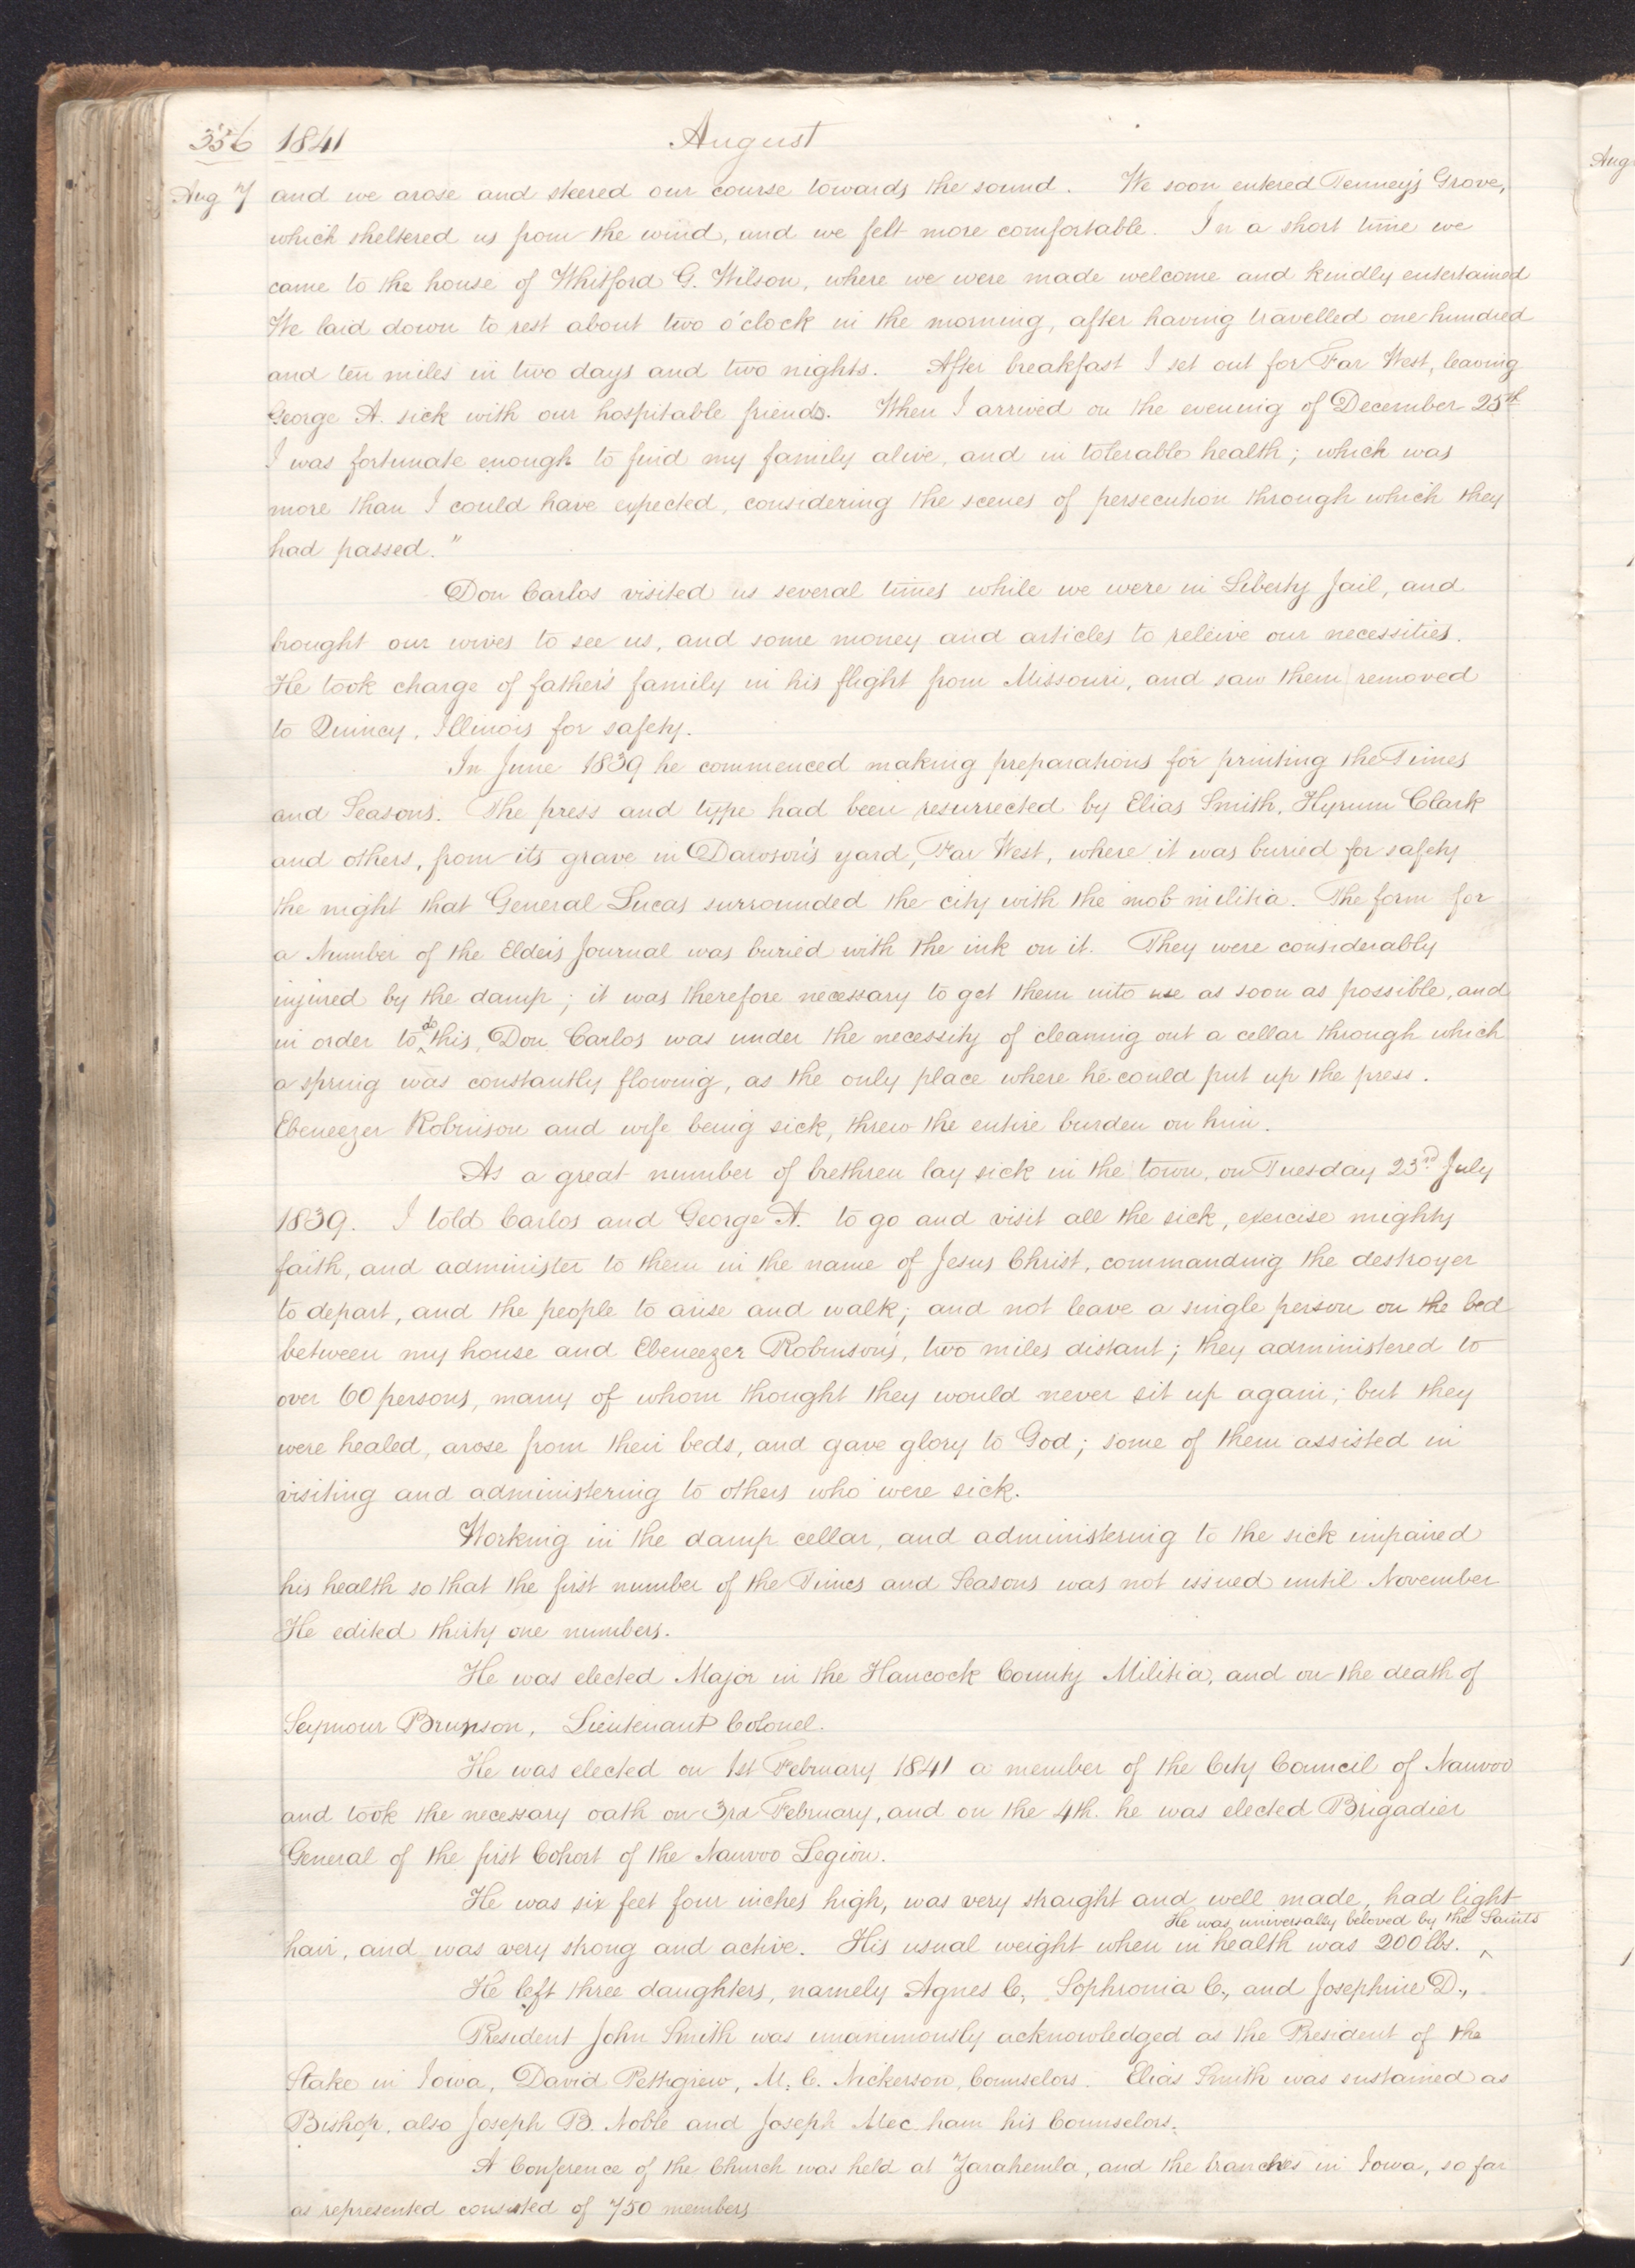 356 1841 August
Aug 7 and we arose and steered our course towards the sound. We soon entered Tenney's Grove,
which sheltered us from the wind, and we felt more comfortable. In a short time we
came to the house of Whitford G. Wilson, where we were made welcome and kindly entertained
We laid down to rest about two o'clock in the morning, after having travelled one hundred
and ten miles in two days and two nights. After breakfast I set out for Far West, leaving
George A. sick with our hospitable friends. When I arrived on the evening of December 25th
I was fortunate enough to find my family alive, and in tolerable health; which was
more than I could have expected, considering the scenes of persecution through which they
had passed."
Don Carlos visited us several times while we were in Liberty Jail, and
brought our wives to see us, and some money and articles to releive our necessities.
He took charge of father's family in his flight from Missouri, and saw them removed
to Quincy, Illinois for safety.
In June 1839 he commenced making preparations for printing the Times
and Seasons. The press and type had been resurrected by Elias Smith, Hyrum Clark
and others, from its grave in Dawson's yard, Far West, where it was buried for safety
the night that General Lucas surrounded the city with the mob militia. The form for
a Number of the Elders Journal was buried with the ink on it. They were considerably
injured by the damp; it was therefore necessary to get them into use as soon as possible, and
in order to do this, Don Carlos was under the necessity of cleaning out a cellar through which
a spring was constantly flowing, as the only place where he could put up the press.
Ebeneezer Robinson and wife being sick, threw the entire burden on him.
As a great number of brethren lay sick in the town, on Tuesday 23rd July
1839. I told Carlos and George A. to go and visit all the sick, exercise mighty
faith, and administer to them in the name of Jesus Christ, commanding the destroyer
to depart, and the people to arise and walk; and not leave a single person on the bed
between my house and Ebeneezer Robinson's, two miles distant; they administered to
over 60 persons, many of whom thought they would never sit up again; but they
were healed, arose from their beds, and gave glory to God; some of them assisted in
visiting and administering to others who were sick.
Working in the damp cellar, and administering to the sick impaired
his health so that the first number of the Times and Seasons was not issued until November
He edited thirty one numbers.
He was elected Major in the Hancock County Militia, and on the death of
Seymour Brunson, Lieutenant Colonel.
He was elected on 1st February 1841 a member of the City Council of Nauvoo
and took the necessary oath on 3rd February, and on the 4th. he was elected Brigadier
General of the first Cohort of the Nauvoo Legion.
He was six feet four inches high, was very straight and well made, had light
He was universally beloved by the Saints
hair, and was very strong and active. His usual weight when in health was 200 lbs. ^
He left three daughters, namely Agnes C., Sophronia C., and Josephine D.,
President John Smith was unanimously acknowledged as the President of the
Stake in Iowa, David Pettigrew, M. C. Nickerson, Counselors. Elias Smith was sustained as
Bishop, also Joseph B. Noble and Joseph Mec ham his Counselors.
A Conference of the Church was held at Zarahemla, and the branches in Iowa, so far
as represented consisted of 750 members
Aug